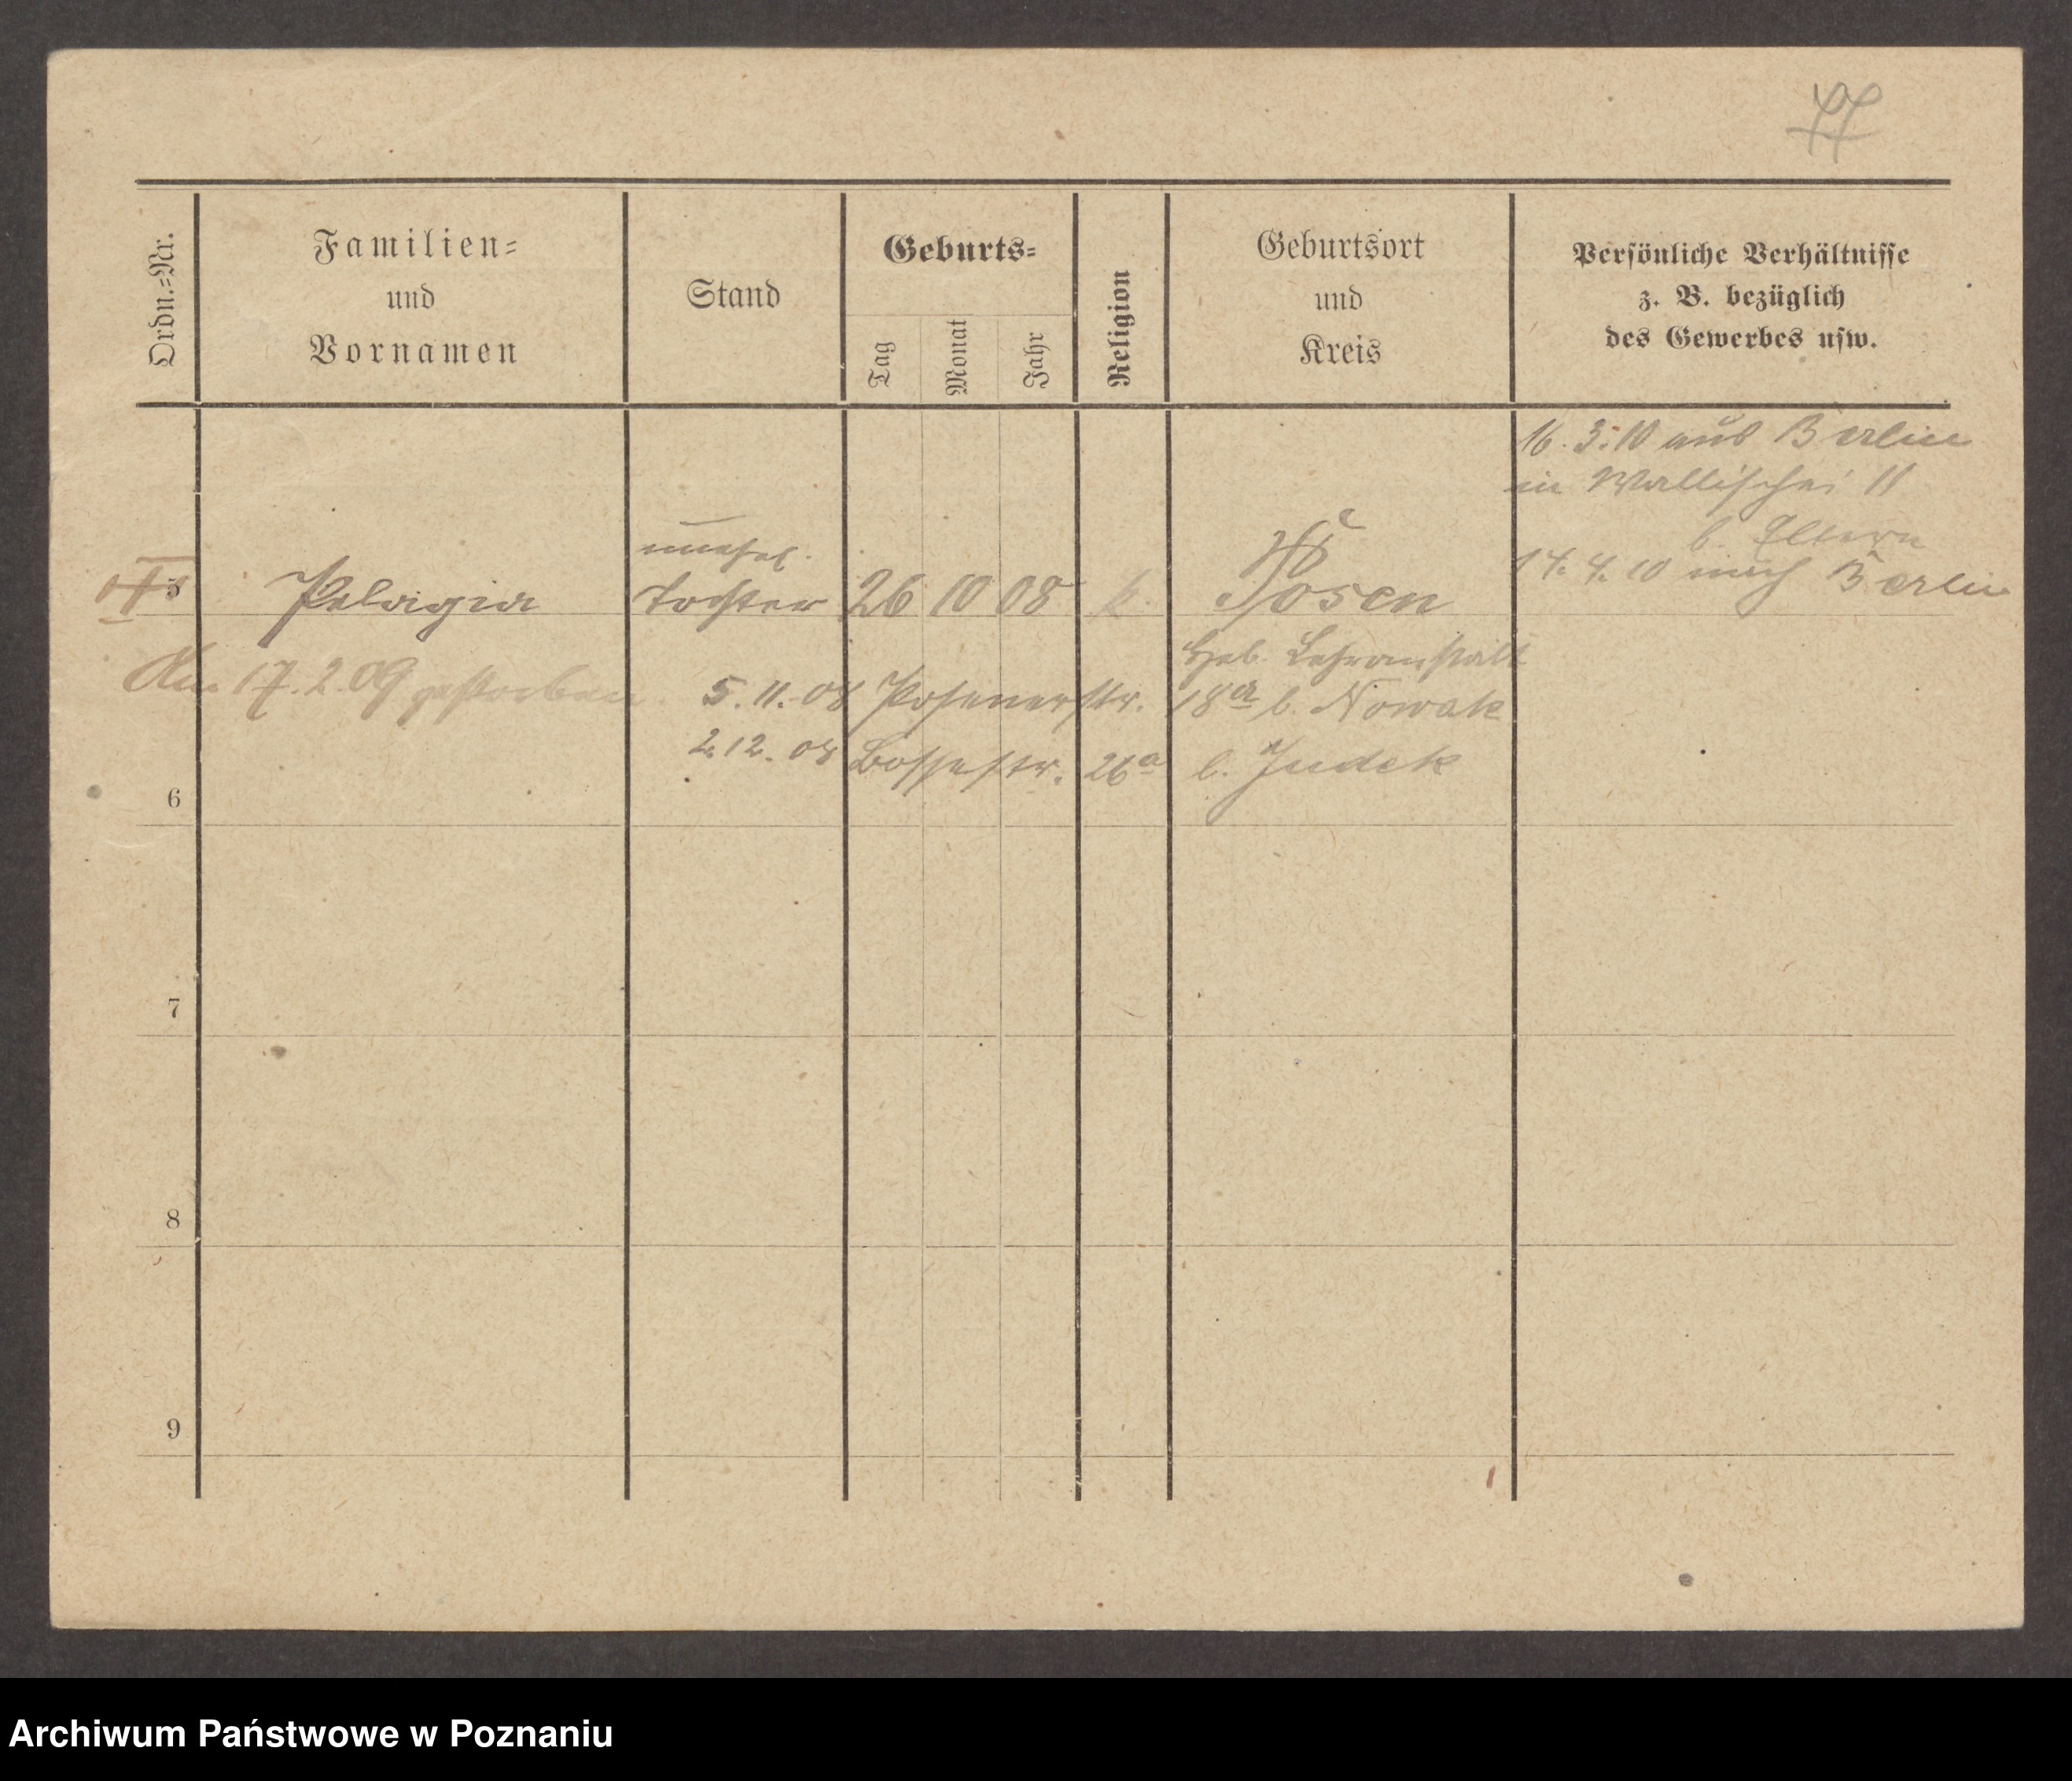 77
Ordn.-Nr.
Familien-
und
Vornamen
Stand
Geburts-
Tag
Monat
Jahr
Religion
Geburtsort
und
Kreis
Persönliche Verhältnisse
z. B. bezüglich
des Gewerbes usw.
16. 3. 10 aus Berlin
in Wallischei 11
b. Eltern
14. 4. 10 nach Berlin
unehel.
5 Pelagia Tochter 26 10 08 k. Posen
Heb. Lehranstalt
Am 17.2.09 gestorben
5. 11. 08 Posenerstr. 18a b. Nowak
2. 12. 08 Bossestr. 26a b. Judek
6
7
8
9
Archiwum Państwowe w Poznaniu